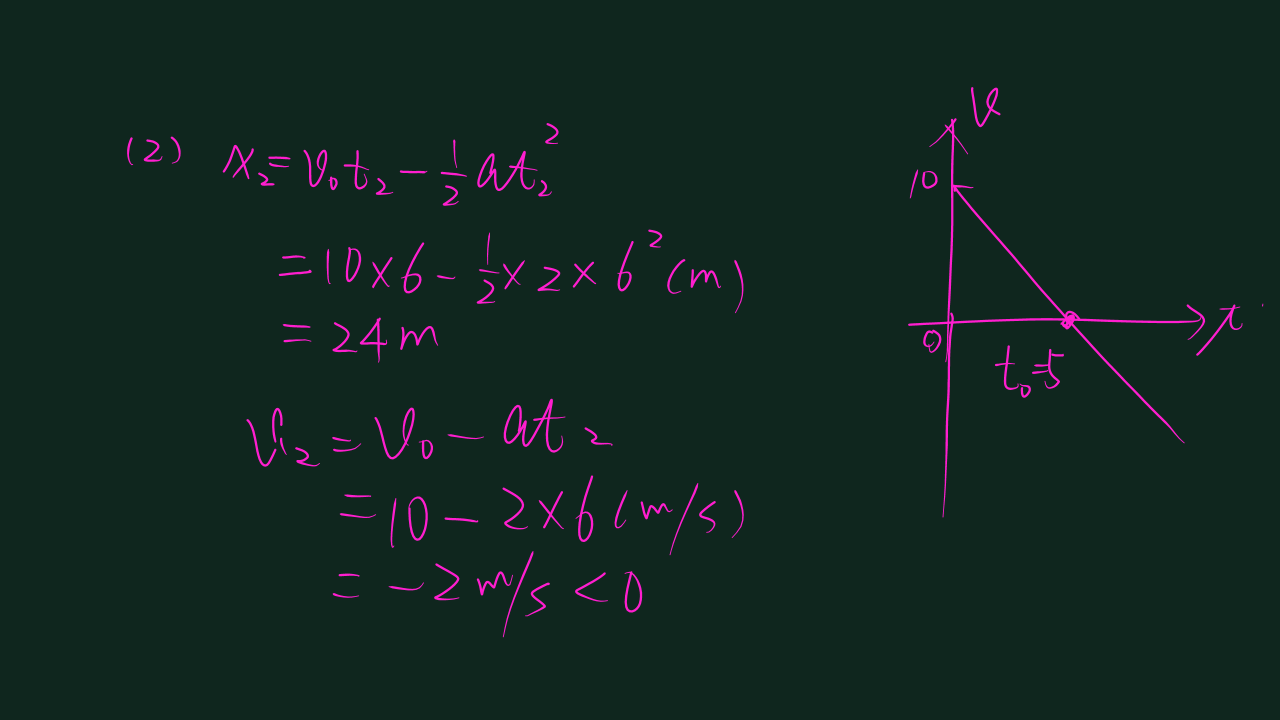 (2) x₂=v₀t₂-½at₂²
=10×6-½×2×6²(m)
=24m
v₂=v₀-at₂
=10-2×6(m/s)
=-2m/s<0
v
10
0
t₀=5
t